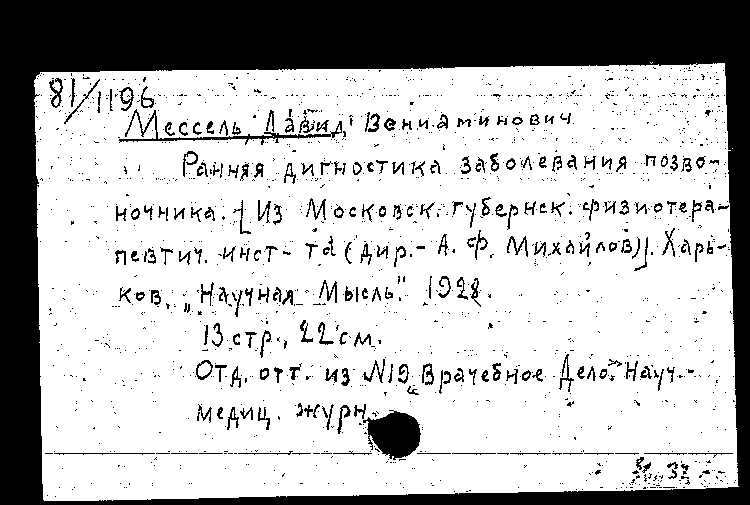 81/1196
Мессель, Давид Вениаминович
Ранняя дигностика заболевания позво-
ночника. [Из Московск. губернск. физиотера-
певтич. инст-та (дир.- А. Ф. Михайлов)]. Харь-
ков. „Научная Мысль". 1928.
13 стр., 22 см.
Отд. отт. из №19 „Врачебное Дело." Науч.-
медиц. журн.